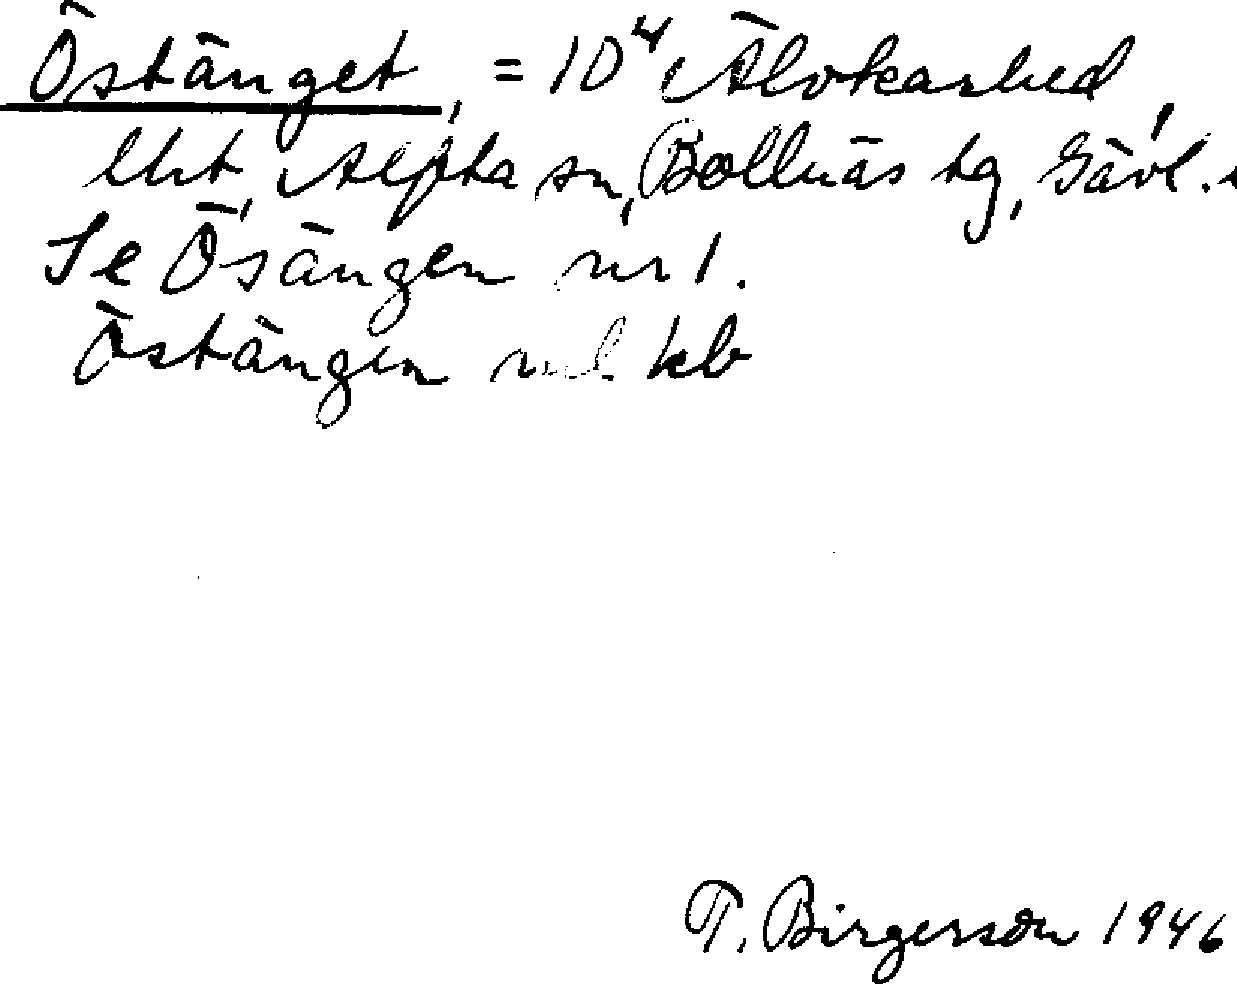 Östänget, = 10⁴ Älvkarhed,
Uht, Alfta sn, Bollnäs tg, Gävl.
Se Ösängen nr 1.
Östängen kb
T. Birgerson 1946